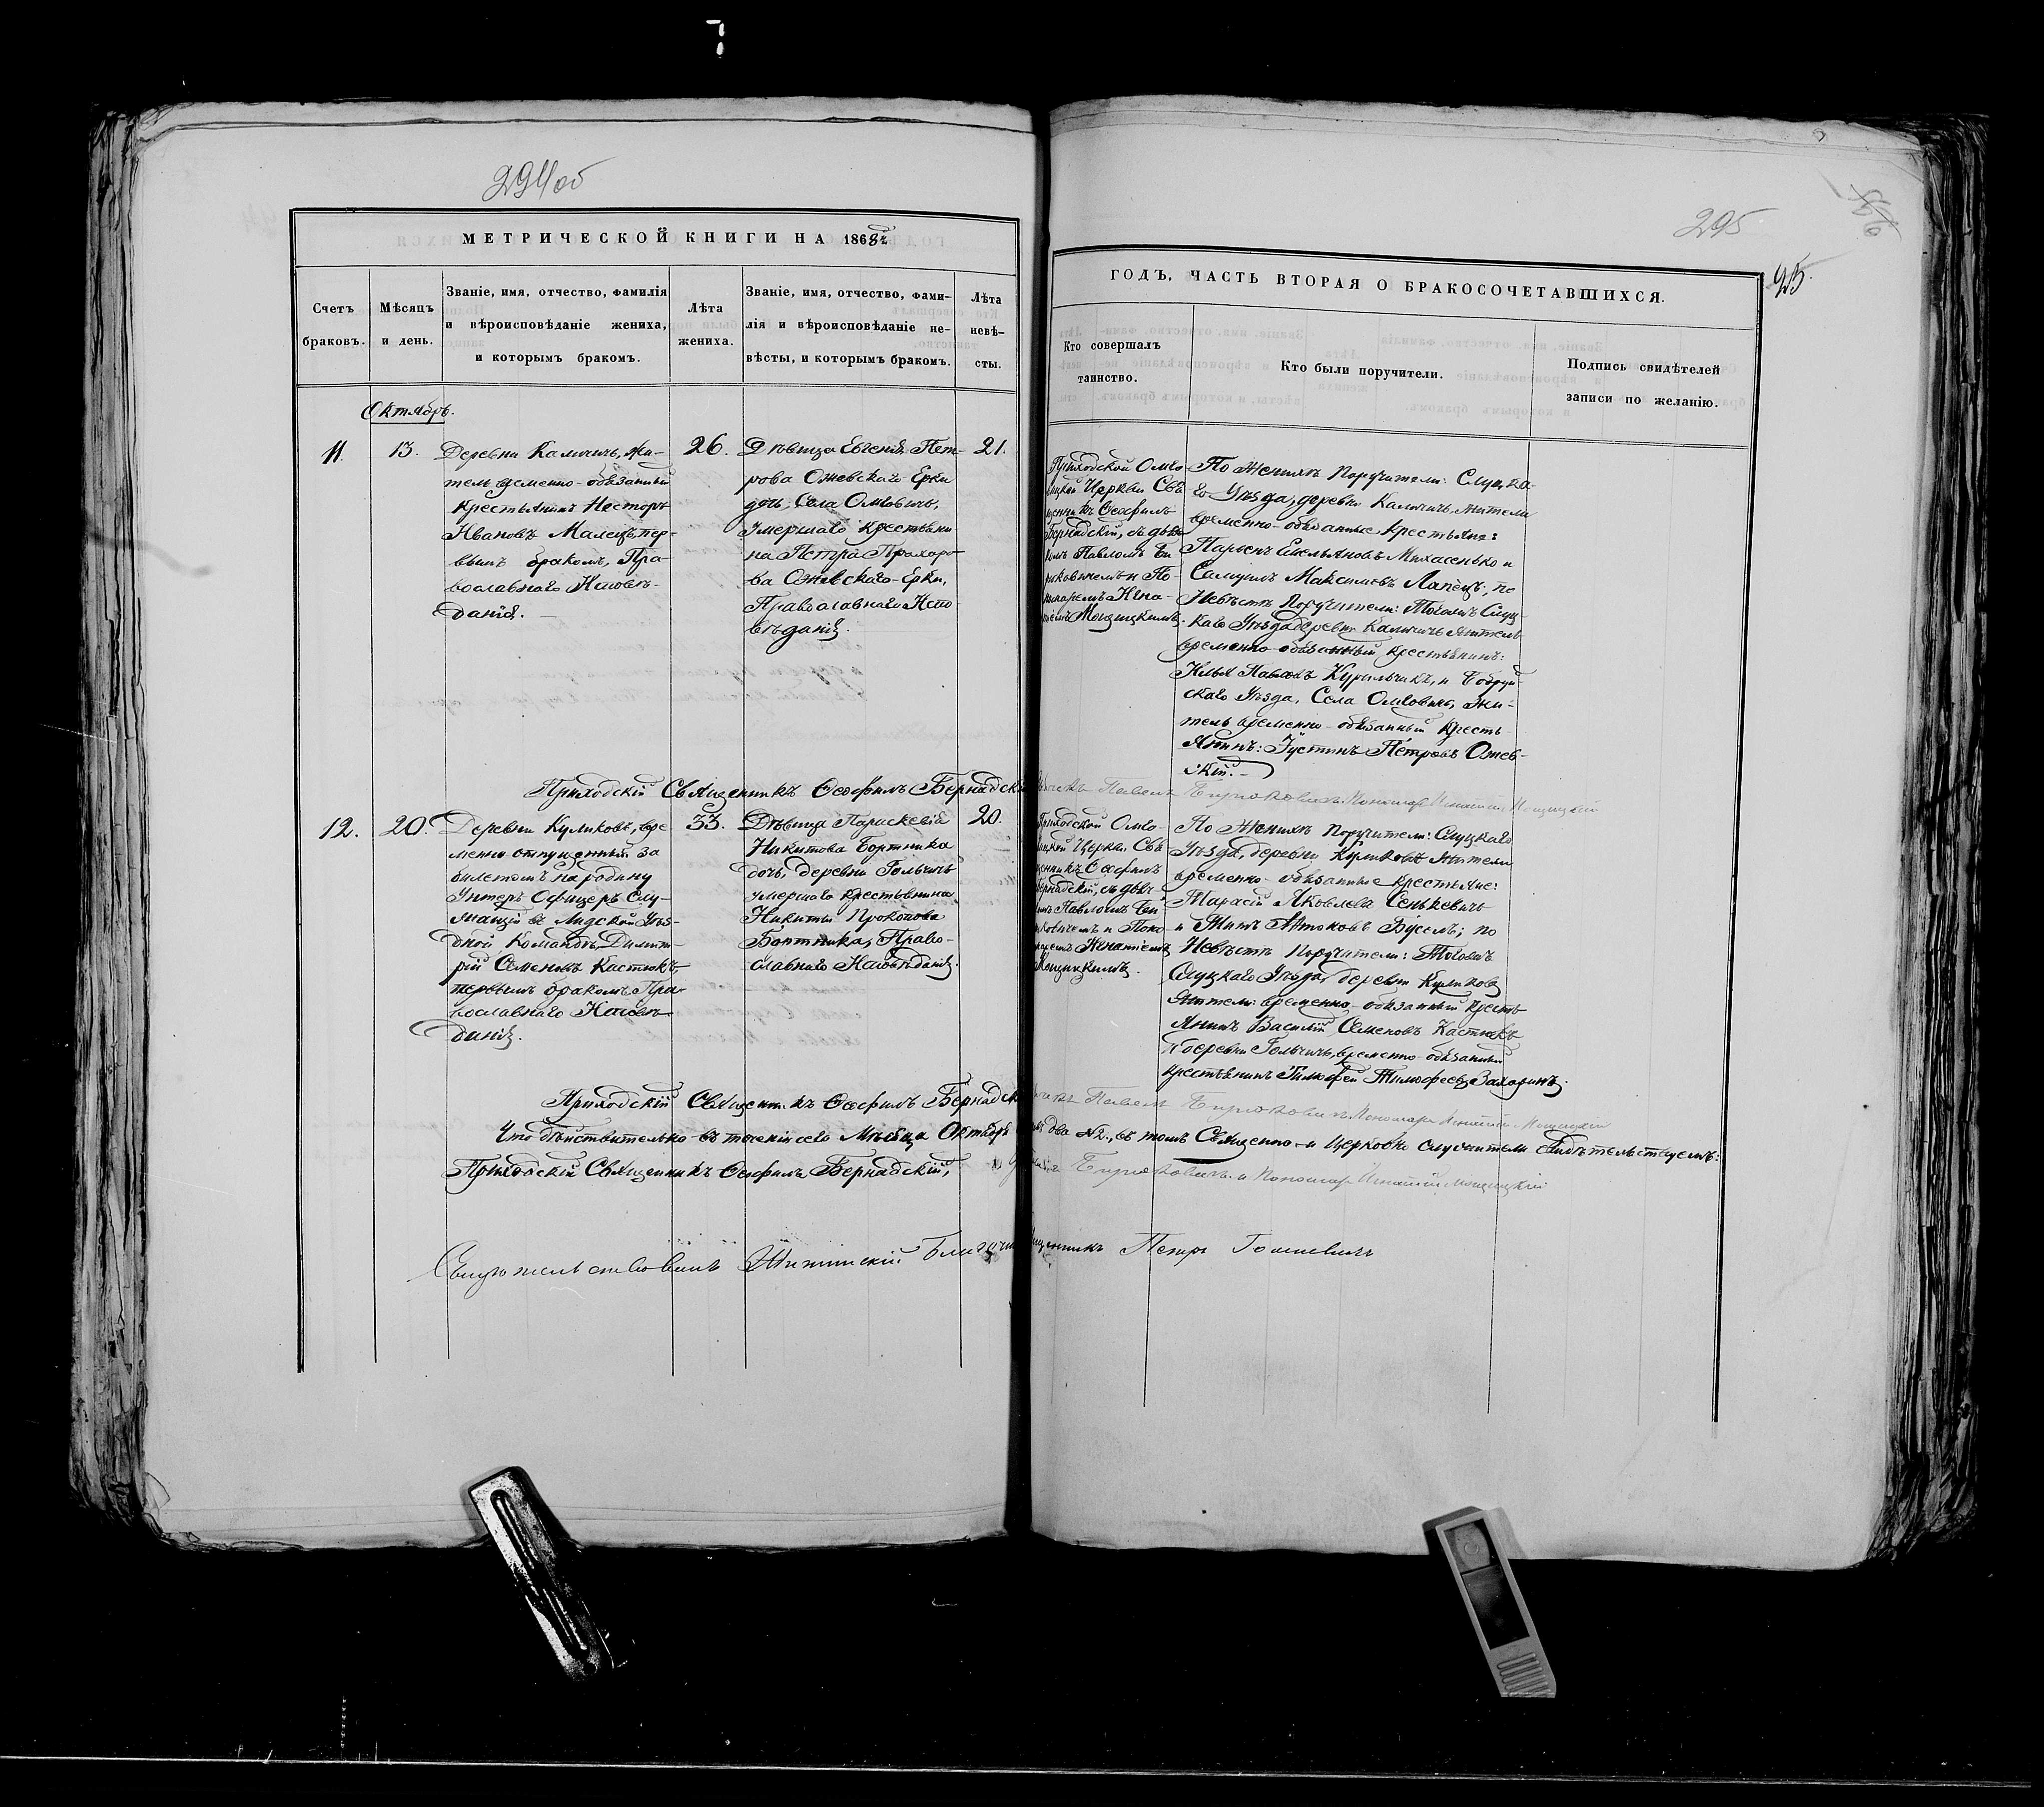 294об
МЕТРИЧЕСКОЙ КНИГИ НА 1868й
Счетъ браковъ.
Мѣсяцъ и день.
Званіе, имя, отчество, фамилія
и вѣроисповѣданіе жениха,
и которымъ бракомъ.
Лѣта жениха.
Званіе, имя, отчество, фами-
лія и вѣроисповѣданіе не-
вѣсты, и которымъ бракомъ.
Лѣта невѣ-
сты.
Октябрь.
11.
13.
Деревни Кальчичь, жи-
тель временно-обязанный
Крестьянинъ Несторъ
Ивановъ Малецъ, пер-
вымъ бракомъ, Пра-
вославнаго Исповѣ-
данія.
26.
Дѣвица Евгенія Пет-
рова Ожевскаго-Ерки
дочь, Села Омговичь,
умершаго крестьяни-
на Петра Прохоро-
ва Ожевскаго-Ерки,
Православнаго Испо-
вѣданія.
21.
Приходскій Священникъ Ѳеофилъ Бернадскій
12.
20.
Деревни Куликовъ, вре
менно отпущенный за
билетомъ на родину
Унтеръ Офицеръ Слу-
жащій въ Лидской Уѣз-
дной Командѣ, Димит-
рій Семеновъ Кастюкъ,
первымъ бракомъ, Пра-
вославнаго Исповѣ-
данія.
33.
Дѣвица Параскевія
Никитова Бортника
дочь, деревни Гольчичь
умершаго крестьянина
Никиты Прокопова
Бортника, Право-
славнаго Исповѣданія.
20.
Приходскій Священникъ Ѳеофилъ Бернадскій
Что дѣйствительно въ теченіи сего Мѣсяца Октября
Приходскій Священникъ Ѳеофилъ Бернадскій,
Свидѣтельствовалъ
295
25.
ГОДЪ, ЧАСТЬ ВТОРАЯ О БРАКОСОЧЕТАВШИХСЯ.
Кто совершалъ
таинство.
Кто были поручители.
Подпись свидѣтелей
записи по желанію.
Приходской Омго
Церкви Свя
щенникъ Ѳеофилъ
Бернадскій, съ дьяч
комъ Павломъ Би
рюковичемъ и По-
номаремъ Игна-
тіемъ Мощицкимъ.
По Женихѣ Поручители: Слуцка-
го Уѣзда, деревни Кальчичь жители
временно-обязанные крестьяне:
Парѳенъ Емельяновъ Михасенько и
Самуилъ Максимовъ Лапецъ; по
Невѣстѣ Поручители: Тогожъ Слуц-
каго Уѣзда деревни Кальчичь житель
временно-обязанный крестьянинъ:
Илья Павловъ Курильчикъ, и Бобруй-
скаго Уѣзда, Села Омговичь, жи-
тель временно-обязанный Кресть-
янинъ: Іустинъ Петровъ Ожев-
скій.
Павелъ Бирюковичъ Пономарь Игнатій Мощицкій
Приходской Омго-
Церкви Свя
щенникъ Ѳеофилъ
Бернадскій, съ дьяч-
комъ Павломъ Би
рюковичемъ и Поно
маремъ Игнатіемъ
Мощицкимъ.
По Женихѣ Поручители: Слуцкаго
Уѣзда, деревни Куликовъ жители
временно-обязанные крестьяне:
Тарасій Яковлевъ Сенькевичъ
и по
Невѣстѣ Поручители: Тогожъ
Слуцкаго Уѣзда, деревни Куликовъ
житель временно-обязанный Кресть
янинъ Василій Семеновъ Кастюкъ
и деревни Гольчичь, временно-обязанный
крестьянинъ Тимофей Тимофеевъ Захаринъ.
Павелъ Бирюковичъ Пономарь Игнатій Мощицкій
два №2., въ томъ Священно- и Церковно служители свидѣтельствуемъ:
Бирюковичъ и Пономарь Игнатій Мощицкій
Петръ